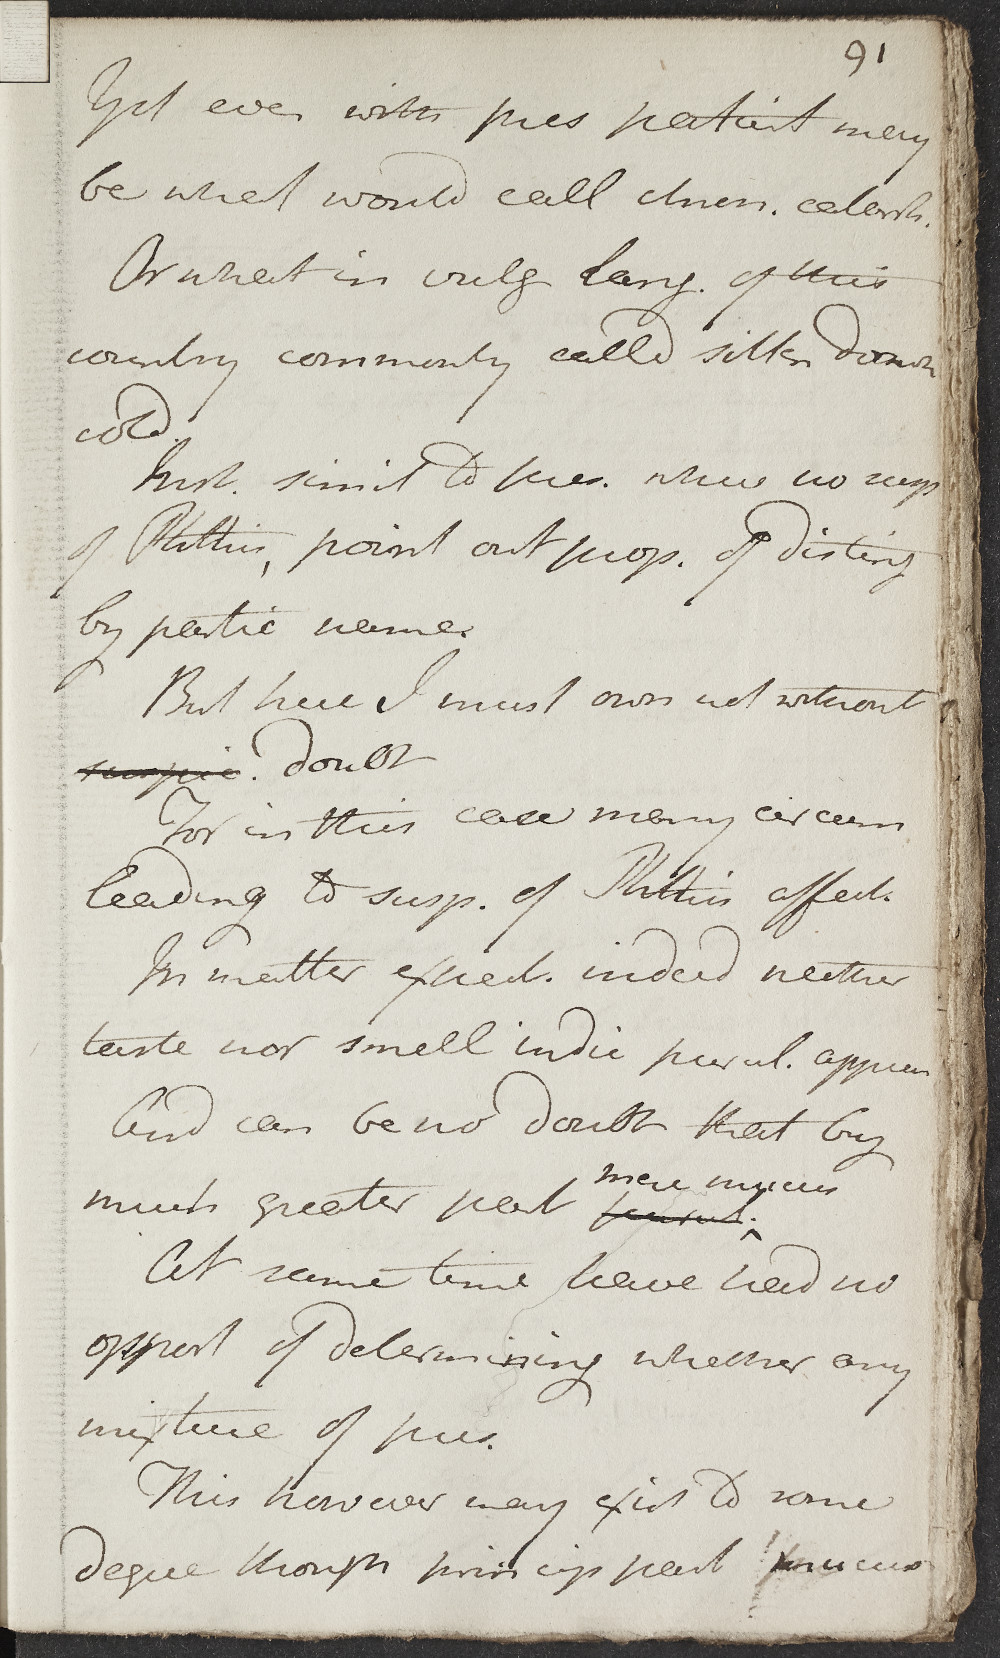 91
Yet even with pres patient may
be what would call chron. catarrh.
Or what in vulg lang. of this
country commonly calld sitten down
cold.
Inst. simil to pres. where no susp
of Phthis, point out prop. of disting
by partic name.
But here I must own not without
suspic. doubt
For in this case many circum
leading to susp. of Phthis affect.
In matter expect. indeed neither
taste nor smell indic purul. appear
And can be no doubt that by
much greater part purul. mere mucus
At same time have had no
opport of determining whether any
mixture of pus.
This however may exist to some
degree though princip part mucus